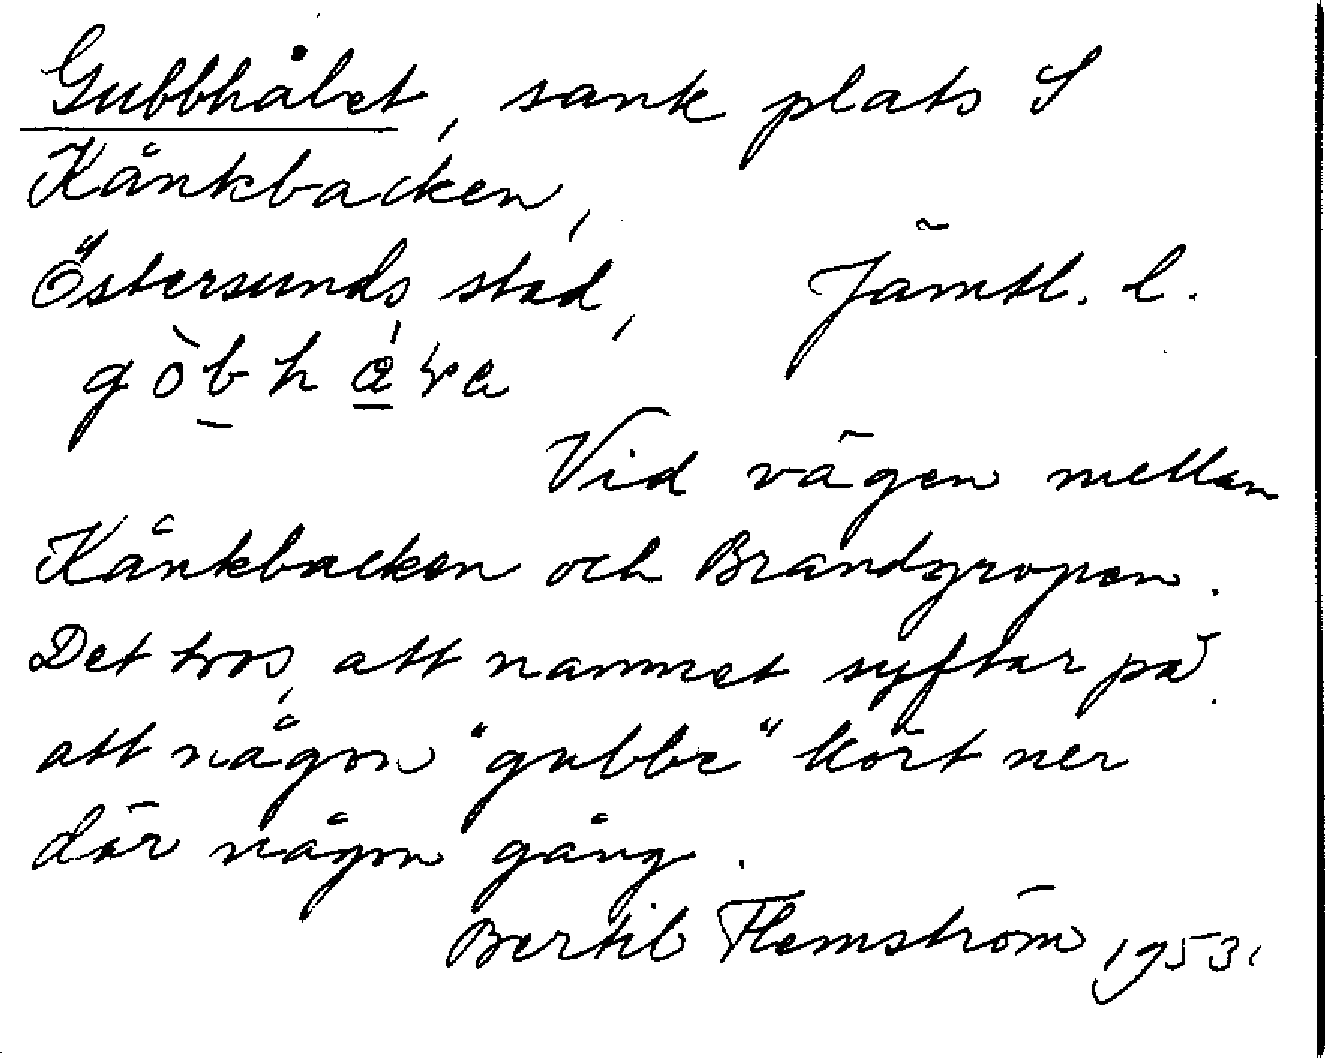 Gubbhålet, sank plats S
Kånkbacken,
Östersunds stad, Jämtl. l.
Vid vägen mellan
Kånkbacken och Brandgropen.
Det tros, att namnet syftar på
att någon "gubbe" kört ner
där någon gång.
Bertil Flemström 1953.